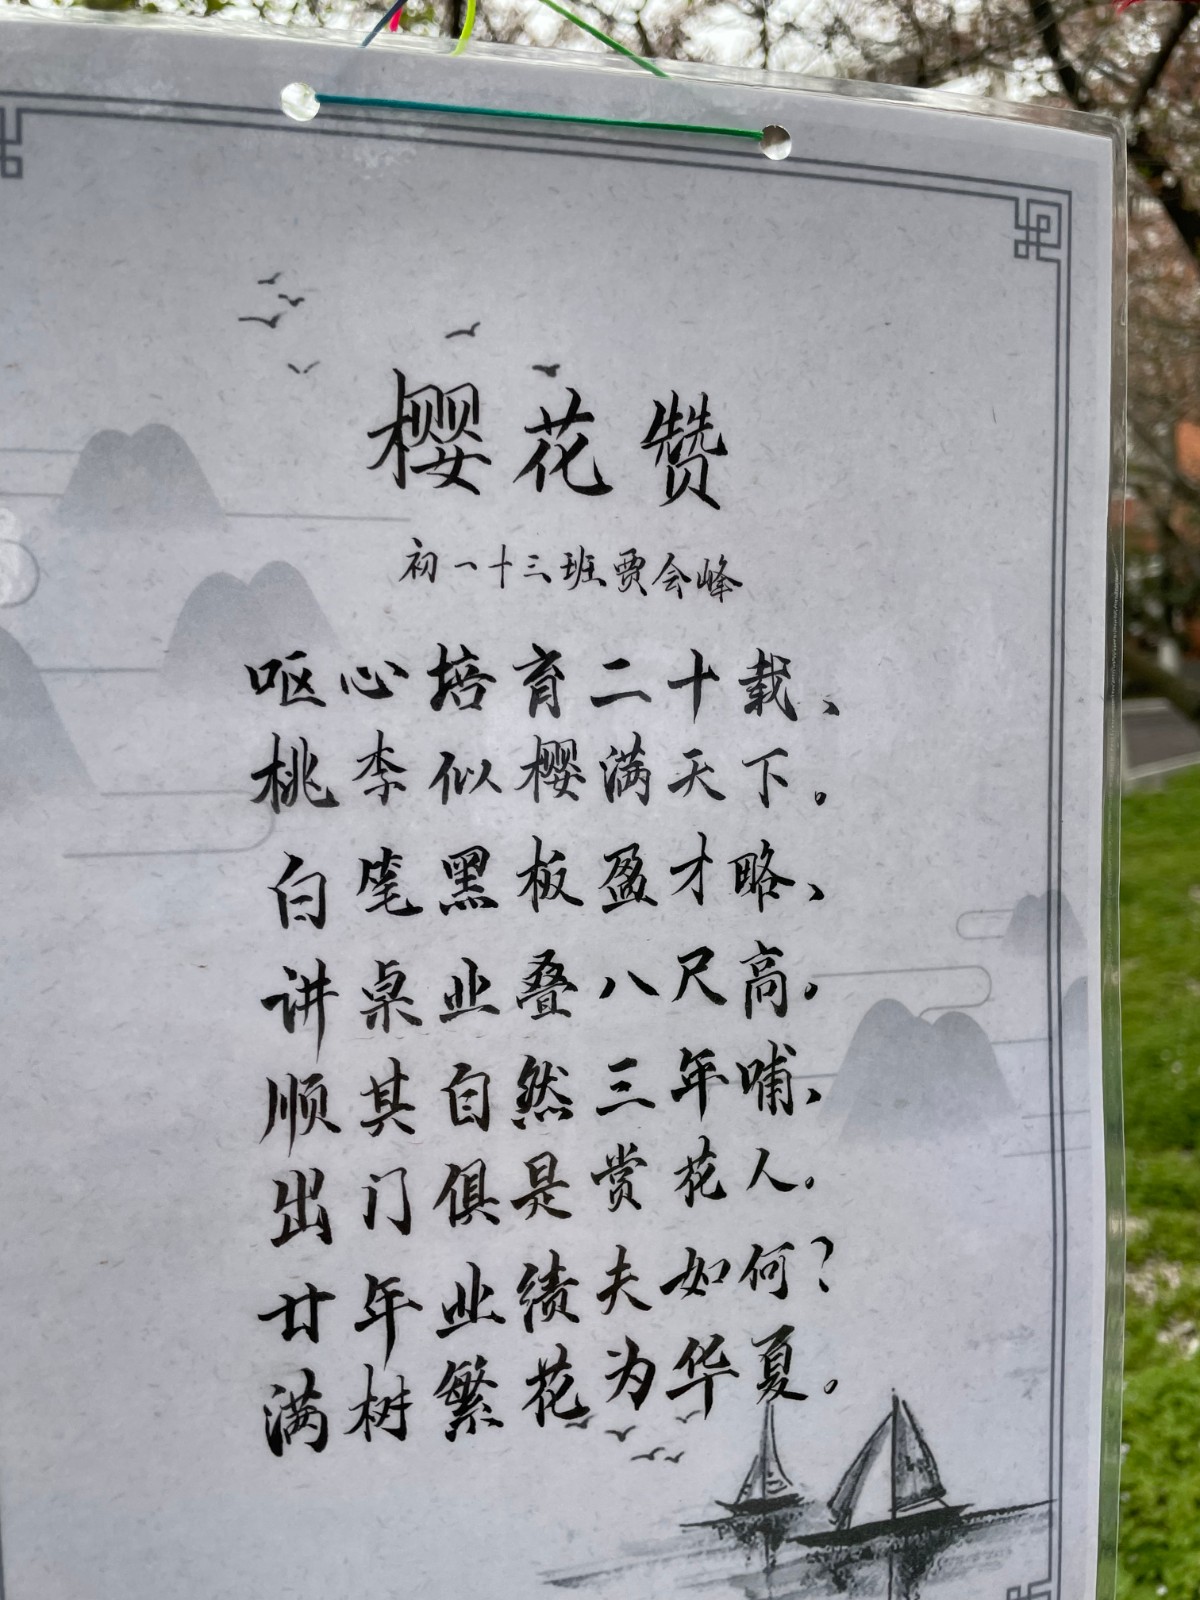 樱花赞
初一十三班贾会峰
呕心培育二十载、
桃李似樱满天下。
白笔黑板盈才略、
讲桌业叠八尺高。
顺其自然三年哺、
出门俱是赏花人。
廿年业绩夫如何？
满树繁花为华夏。